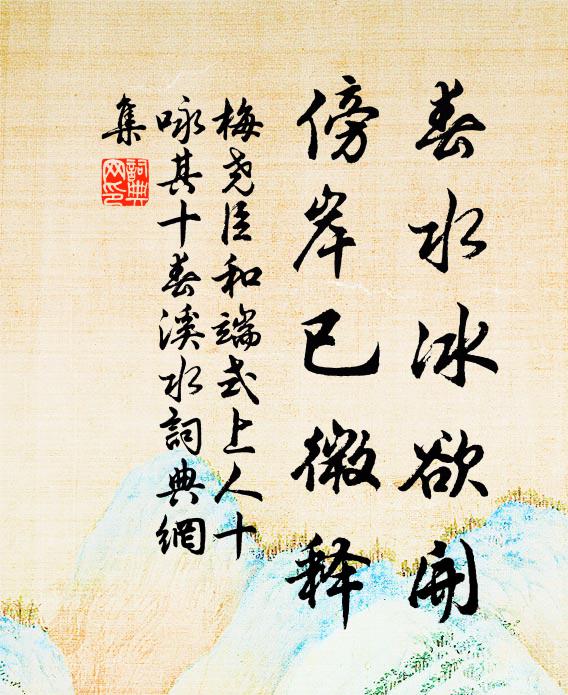 春水冰欲開
傍岸已微释
梅堯臣和端式上人十
咏其十春溪水詞典網
集
詞典網印